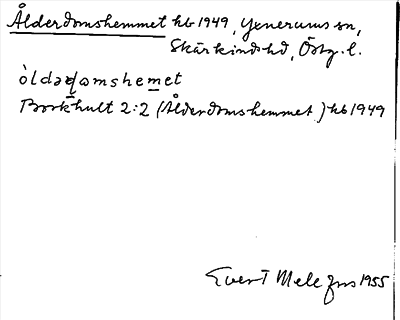 Ålderdomshemmet hb 1949, Yxnerums sn,
Skärkinds hd, Östg. l.
òldəɖomshemet
Borkhult 2:2 (Ålderdomshemmet) hb 1949
Evert Mele 1955